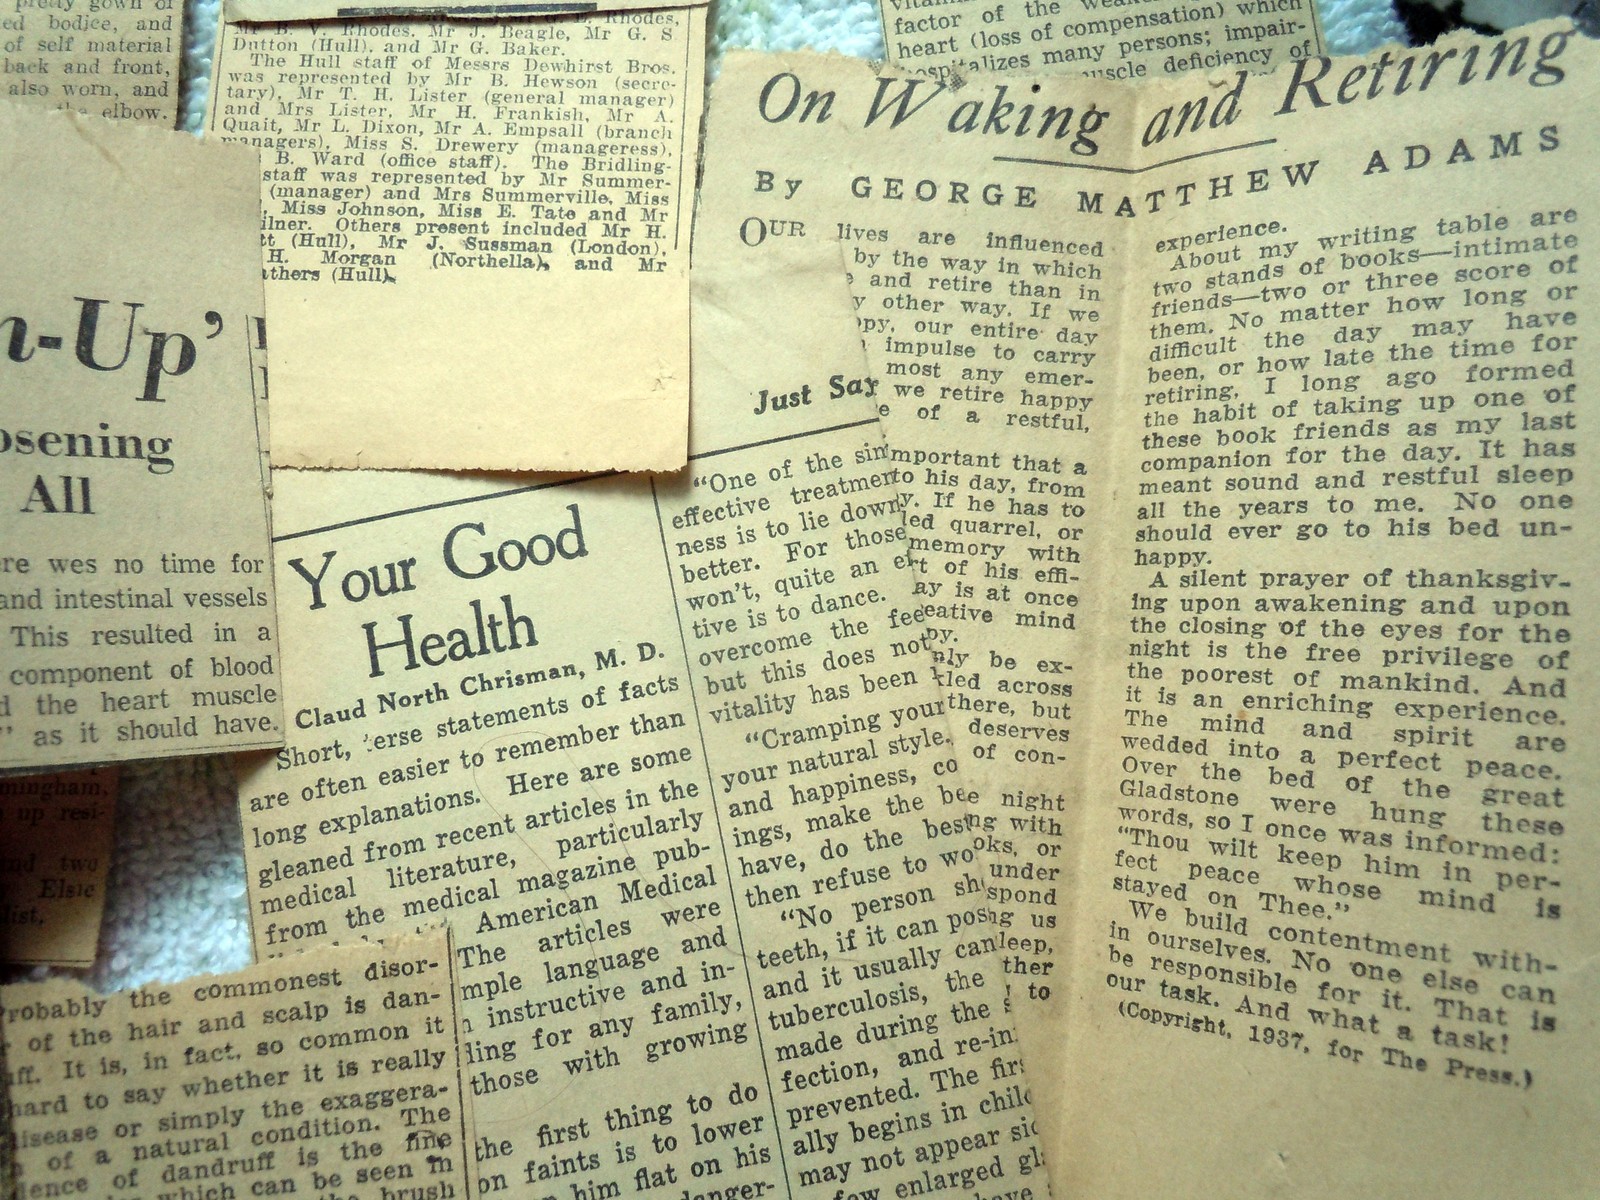 pretty gown of
ed bodice, and
of self material
back and front,
also worn, and
elbow.
Mr B. V. Rhodes, Mr J. Beagle, Mr G. S
Dutton (Hull), and Mr G. Baker.
The Hull staff of Messrs Dewhirst Bros.
was represented by Mr B. Hewson (secre-
tary), Mr T. H. Lister (general manager)
and Mrs Lister, Mr H. Frankish, Mr A.
Quait, Mr L. Dixon, Mr A. Empsall (branch
managers), Miss S. Drewery (manageress),
B. Ward (office staff). The Bridling-
staff was represented by Mr Summer-
(manager) and Mrs Summerville, Miss
Miss Johnson, Miss E. Tate and Mr
ilner. Others present included Mr H.
tt (Hull), Mr J. Sussman (London),
H. Morgan (Northella), and Mr
athers (Hull).
factor of the
heart (loss of compensation) which
hospitalizes many persons; impair-
muscle deficiency of
n-Up'
osening
All
ere wes no time for
and intestinal vessels
This resulted in a
component of blood
d the heart muscle
" as it should have.
mingham,
up resi-
and two
Elsie
list,
Just Say
Your Good
Health
Claud North Chrisman, M. D.
Short, terse statements of facts
are often easier to remember than
long explanations. Here are some
gleaned from recent articles in the
medical literature, particularly
from the medical magazine pub-
American Medical
The articles were
mple language and
n instructive and in-
ling for any family,
those with growing
the first thing to do
on faints is to lower
him flat on his
danger-
"One of the sim
effective treatmen
ness is to lie down
better. For those
won't, quite an e
tive is to dance.
overcome the fee
but this does not
vitality has been
"Cramping your
your natural style.
and happiness, co
ings, make the be
have, do the best
then refuse to wo
"No person sh
teeth, if it can pos
and it usually can
tuberculosis, the
made during the
fection, and re-in
prevented. The fir
ally begins in chil
may not appear si
few enlarged gl
have
probably the commonest disor-
of the hair and scalp is dan-
uff. It is, in fact, so common it
hard to say whether it is really
disease or simply the exaggera-
of a natural condition. The
dence of dandruff is the fine
which can be seen in
the brush
On Waking and Retiring
By GEORGE MATTHEW ADAMS
OUR lives are influenced
by the way in which
e and retire than in
y other way. If we
ppy, our entire day
impulse to carry
most any emer-
we retire happy
e of a restful,
mportant that a
to his day, from
y. If he has to
led quarrel, or
memory with
rt of his effi-
ay is at once
eative mind
py.
nly be ex-
tled across
there, but
deserves
of con-
e night
ng with
oks, or
under
spond
ng us
leep,
ther
to
experience.
About my writing table are
two stands of books—intimate
friends—two or three score of
them. No matter how long or
difficult the day may have
been, or how late the time for
retiring, I long ago formed
the habit of taking up one of
these book friends as my last
companion for the day. It has
meant sound and restful sleep
all the years to me. No one
should ever go to his bed un-
happy.
A silent prayer of thanksgiv-
ing upon awakening and upon
the closing of the eyes for the
night is the free privilege of
the poorest of mankind. And
it is an enriching experience.
The mind and spirit are
wedded into a perfect peace.
Over the bed of the great
Gladstone were hung these
words, so I once was informed:
"Thou wilt keep him in per-
fect peace whose mind is
stayed on Thee."
We build contentment with-
in ourselves. No one else can
be responsible for it. That is
our task. And what a task!
(Copyright, 1937, for The Press.)